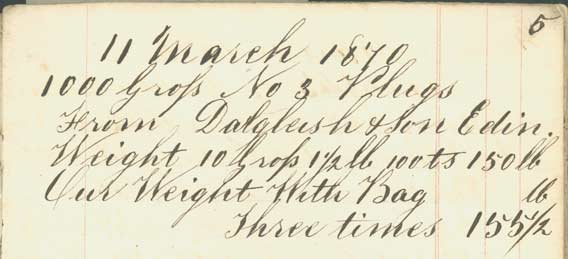 5
11 March 1870
1000 Gross No 3 Plugs
From Dalgleish & Son Edin.
Weight 10 Gross 1 1/2 lb 100 ts 150 lb
Our Weight With Bag lb
Three times 155 1/2